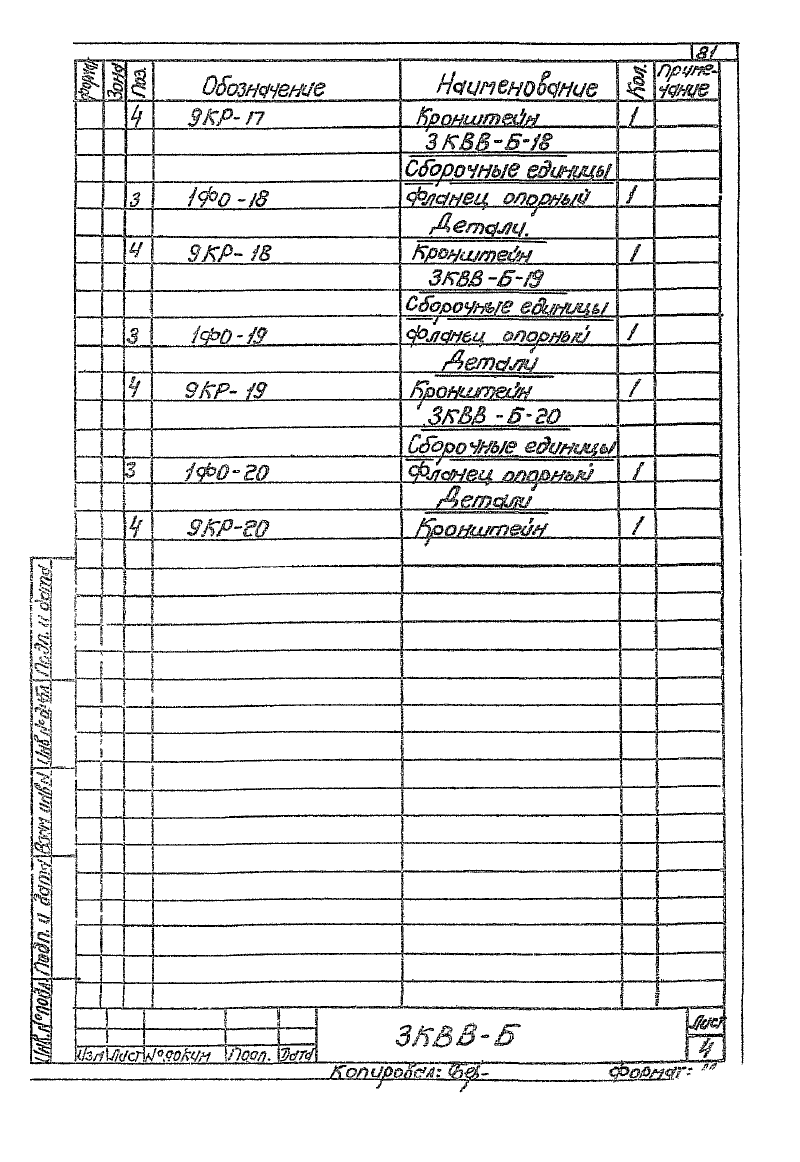 81
Форм. Зона Поз. Обозначение Наименование Кол. Приме-
чание
4 9КР-17 Кронштейн 1
3КВВ-Б-18
Сборочные единицы
3 1ФО-18 Фланец опорный 1
Детали.
4 9КР-18 Кронштейн 1
3КВВ-Б-19
Сборочные единицы
3 1ФО-19 Фланец опорный 1
Детали
4 9КР-19 Кронштейн 1
3КВВ-Б-20
Сборочные единицы
3 1ФО-20 Фланец опорный 1
Детали
4 9КР-20 Кронштейн 1
Подп. и дата
Инв.№дубл.
Взам инв.№
Подп. и дата
Инв.№подл.
3КВВ-Б
Лист
4
Изм Лист №докум Подп. Дата
Копировал: Формат: